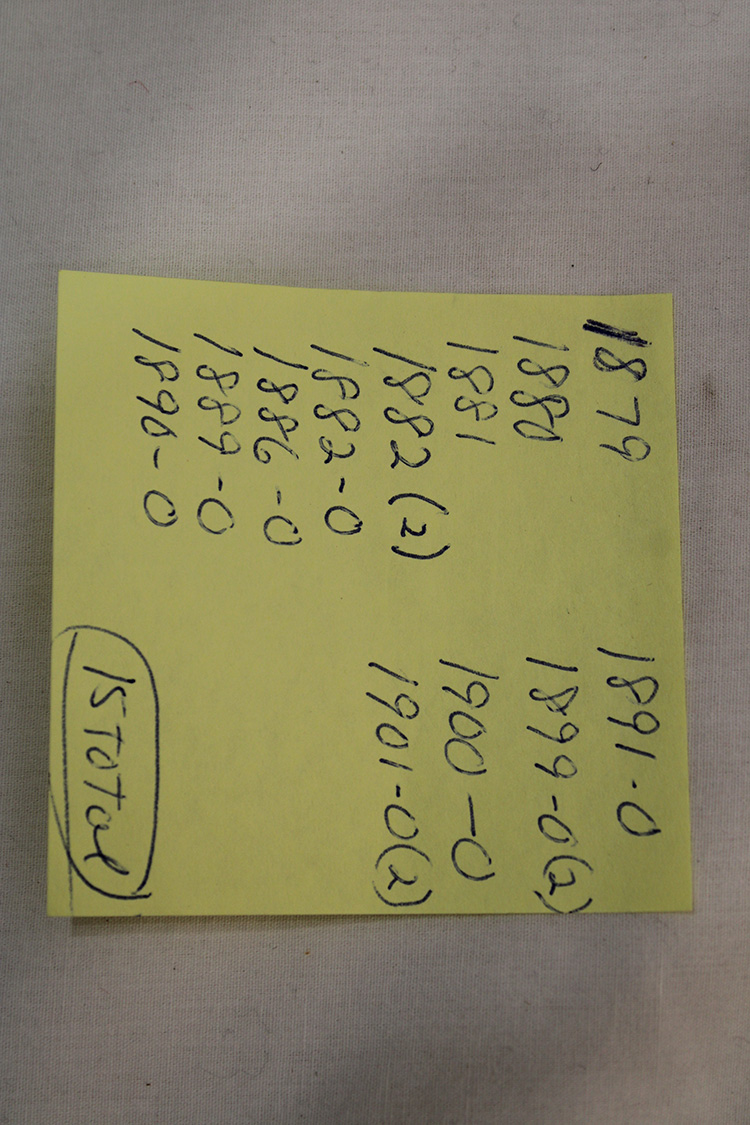 1879
1880
1881
1882 (2)
1882-0
1886-0
1889-0
1890-0
1891-0
1899-0(2)
1900-0
1901-0(2)
15 total